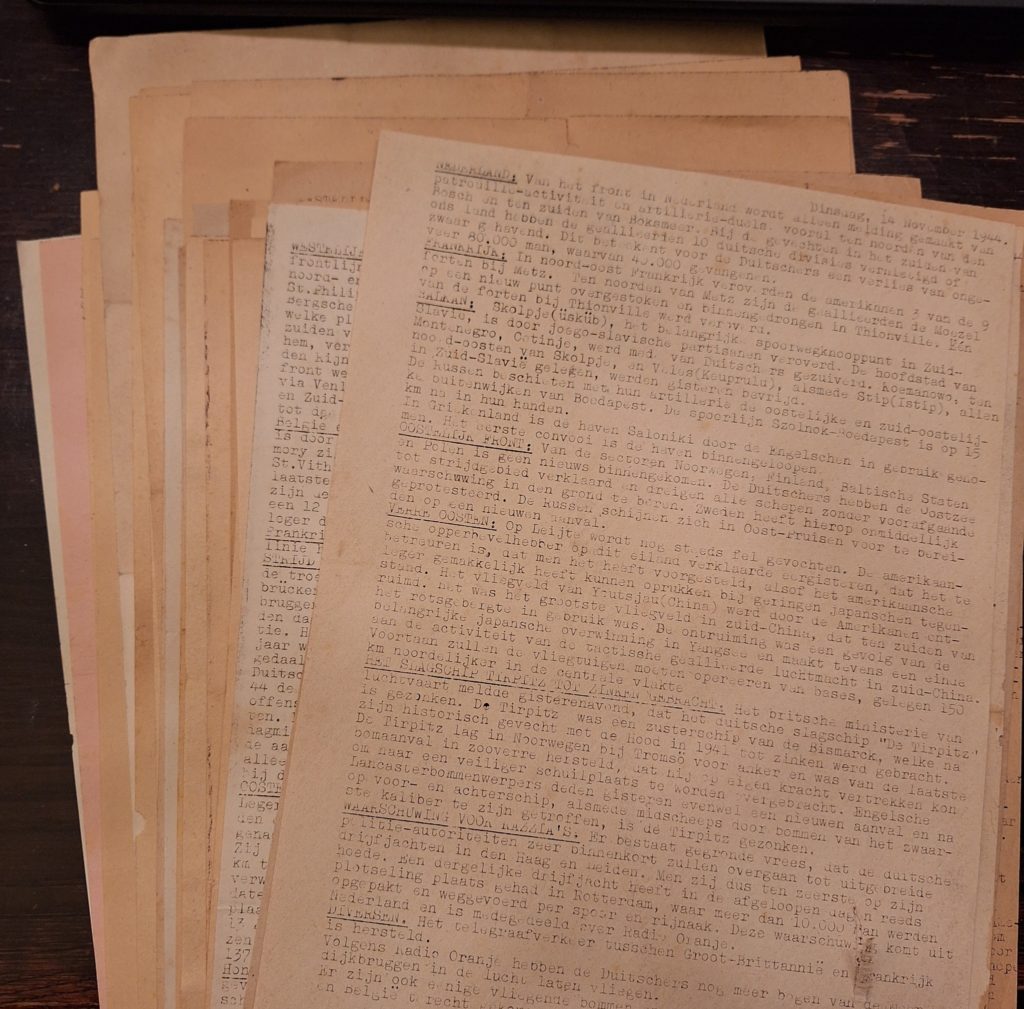 Dinsdag, 14 November 1944.
NEDERLAND: Van het front in Nederland wordt alleen melding gemaakt van
patrouille-activiteit en artillerie-duels, vooral ten noorden van den
Bosch en ten zuiden van Boksmeer. Bij de gevechten in het zuiden van
ons land hebben de geallieerden 10 duitsche divisies vernietigd of
zwaar gehavend. Dit beteekent voor de Duitschers een verlies van onge-
veer 80.000 man, waarvan 40.000 gevangenen.
FRANKRIJK: In noord-oost Frankrijk veroverden de amerikanen 3 van de 9
forten bij Metz. Ten noorden van Metz zijn de geallieerden de Moezel
op een nieuw punt overgestoken en binnengedrongen in Thionville. Eén
van de forten bij Thionville werd veroverd.
BALKAN: Skolpje(üsküb), het belangrijke spoorwegknooppunt in Zuid-
Slavie, is door joego-slavische partisanen veroverd. De hoofdstad van
Montenegro, Cetinje, werd mede van Duitschers gezuiverd. Koemanowo, ten
noord-oosten van Skolpje, en Veles(Keuprulu), alsmede Stip(Istip), allen
in Zuid-Slavië gelegen, werden gisteren bevrijd.
De Russen beschieten met hun artillerie de oostelijke en zuid-oostelij-
ke buitenwijken van Boedapest. De spoorlijn Szolnok-Boedapest is op 15
km na in hun handen.
In Griekenland is de haven Saloniki door de Engelschen in gebruik geno-
men. Het eerste convooi is de haven binnengeloopen.
OOSTELIJK FRONT: Van de sectoren Noorwegen, Finland, Baltische Staten
en Polen is geen nieuws binnengekomen. De Duitschers hebben de Oostzee
tot strijdgebied verklaard en dreigen alle schepen zonder voorafgaande
waarschuwing in den grond te boren. Zweden heeft hierop onmiddellijk
geprotesteerd. De Russen schijnen zich in Oost-Pruisen voor te berei-
den op een nieuwen aanval.
VERRE OOSTEN: Op Leijte wordt nog steeds fel gevochten. De amerikaan-
sche opperbevelhebber op dit eiland verklaarde eergisteren, dat het te
betreuren is, dat men het heeft voorgesteld, alsof het amerikaansche
leger gemakkelijk heeft kunnen oprukken bij geringen japanschen tegen-
stand. Het vliegveld van Youtsjau(China) werd door de Amerikanen ont-
ruimd. Het was het grootste vliegveld in zuid-China, dat ten zuiden van
het rotsgebergte in gebruik was. De ontruiming was een gevolg van de
belangrijke japansche overwinning in Yangsee en maakt tevens een einde
aan de activiteit van de tactische geallieerde luchtmacht in zuid-China.
Voortaan zullen de vliegtuigen moeten opereeren van bases, gelegen 150
km noordelijker in de centrale vlakte
HET SLAGSCHIP TIRPITZ TOT ZINKEN GEBRACHT. Het britsche ministerie van
luchtvaart meldde gisterenavond, dat het duitsche slagschip "De Tirpitz"
is gezonken. De Tirpitz was een zusterschip van de Bismarck, welke na
zijn historisch gevecht met de Hood in 1941 tot zinken werd gebracht.
De Tirpitz lag in Noorwegen bij Tromsö voor anker en was van de laatste
bomaanval in zooverre hersteld, dat hij op eigen kracht vertrekken kon
om naar een veiliger schuilplaats te worden overgebracht. Engelsche
Lancasterbommenwerpers deden gisteren evenwel een nieuwen aanval en na
op voor- en achterschip, alsmede midscheeps door bommen van het zwaar-
ste kaliber te zijn getroffen, is de Tirpitz gezonken.
WAARSCHUWING VOOR RAZZIA'S. Er bestaat gegronde vrees, dat de duitsche
politie-autoriteiten zeer binnenkort zullen overgaan tot uitgebreide
drijfjachten in den Haag en Leiden. Men zij dus ten zeerste op zijn
hoede. Een dergelijke drijfjacht heeft in de afgeloopen dagen reeds
plotseling plaats gehad in Rotterdam, waar meer dan 10.000 man werden
opgepakt en weggevoerd per spoor en rijnaak. Deze waarschuwing komt uit
Nederland en is medegedeeld over Radio Oranje.
DIVERSEN. Het telegraafverkeer tusschen Groot-Brittannië en Frankrijk
is hersteld.
Volgens Radio Oranje hebben de Duitschers nog meer bogen van de
dijkbruggen in de lucht laten vliegen.
Er zijn ook eenige vliegende bommen
en België t recht
WESTELIJK
frontlijn
noord- en
St.Phili
Bergsche
welke pl
zuiden v
hem, ver
den Rijn
front we
via Venl
en Zuid-
tot de
België e
is door
mory zi
St.Vith
laatste
zijn de
een 12
leger d
Frankri
linie
STRIJD
de troe
brücken
bruggen
den da
tie. H
jaar w
gedaal
Duitsc
44 de
offens
ten.
nagmi
de aa
allee
bij d
OOSTE
leger
den
genad
Zij
km t
verw
dat
plaa
13
zen
137
Hon
gev
sch